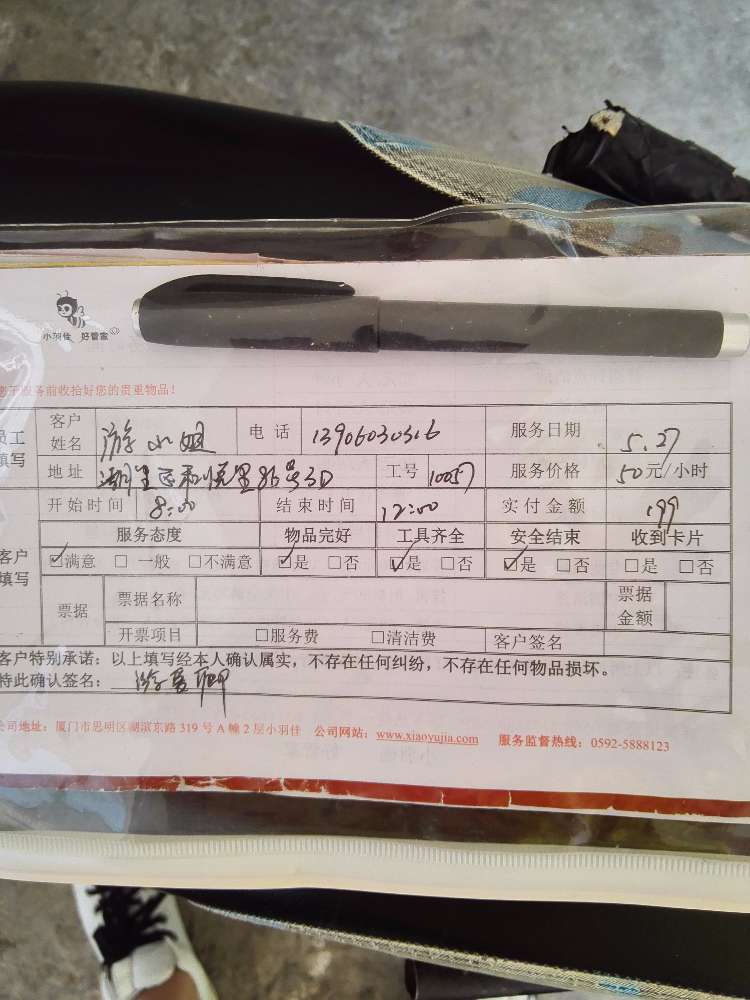 小羽佳 好管家
服务前收拾好您的贵重物品！
员工填写 客户姓名 游小姐 电话 13906030316 服务日期 5.27
地址 工号 10057 服务价格 50元/小时
开始时间 8:00 结束时间 12:00 实付金额 199
客户填写 服务态度 物品完好 工具齐全 安全结束 收到卡片
☑满意 □一般 □不满意 ☑是 □否 ☑是 □否 ☑是 □否 □是 □否
票据 票据名称 票据金额
开票项目 □服务费 □清洁费 客户签名
客户特别承诺：以上填写经本人确认属实，不存在任何纠纷，不存在任何物品损坏。
特此确认签名：
公司地址：厦门市思明区湖滨东路 319 号 A 幢 2 层小羽佳 公司网站：www.xiaoyujia.com 服务监督热线：0592-5888123